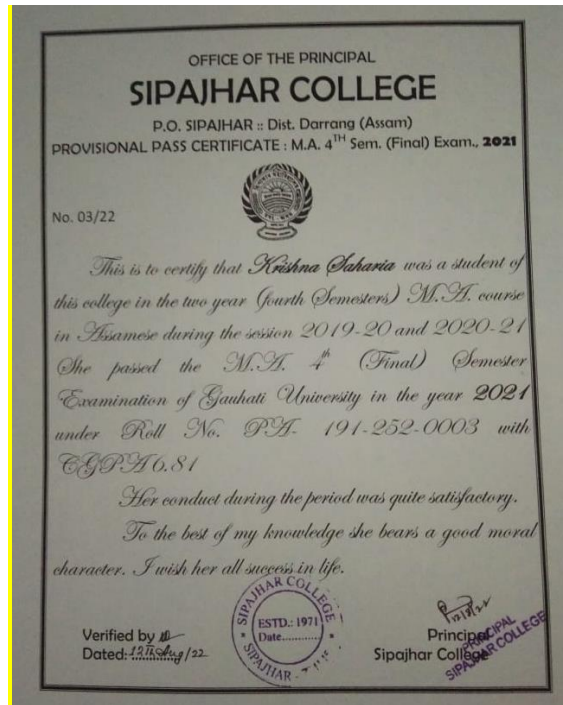 OFFICE OF THE PRINCIPAL
SIPAJHAR COLLEGE
P.O. SIPAJHAR :: Dist. Darrang (Assam)
PROVISIONAL PASS CERTIFICATE : M.A. 4TH Sem. (Final) Exam., 2021
No. 03/22
This is to certify that Krishna Saharia was a student of
this college in the two year (fourth Semesters) M.A. course
in Assamese during the session 2019-20 and 2020-21
She passed the M.A. 4th (Final) Semester
Examination of Gauhati University in the year 2021
under Roll No. PA- 191-252-0003 with
CGPA 6.81
Her conduct during the period was quite satisfactory.
To the best of my knowledge she bears a good moral
character. I wish her all success in life.
SIPAJHAR COLLEGE
ESTD.: 1971
Date............
SIPAJHAR
Verified by
Dated: 12th Aug/22
12/8/22
Principal
Sipajhar College
PRINCIPAL
SIPAJHAR COLLEGE